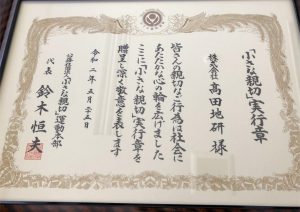 「小さな親切」実行章
株式会社 高田地研 様
皆さんの親切なご行為は社会に
あたたかな心の輪を広げました
ここに「小さな親切」実行章を
贈呈し深く敬意を表します
令和二年五月二十五日
公益社団法人「小さな親切」運動本部
代表 鈴木恒夫